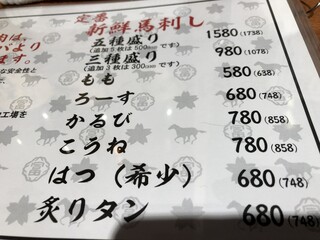 定番
新鮮馬刺し
五種盛り 1580(1738)
(追加5枚は500円です)
三種盛り 980(1078)
(追加3枚は300円です)
もも 580(638)
ろーす 680(748)
かるび 780(858)
こうね 780(858)
はつ(希少) 680(748)
炙りタン 680(748)
肉は、
より
ます。
安全性と
工場を